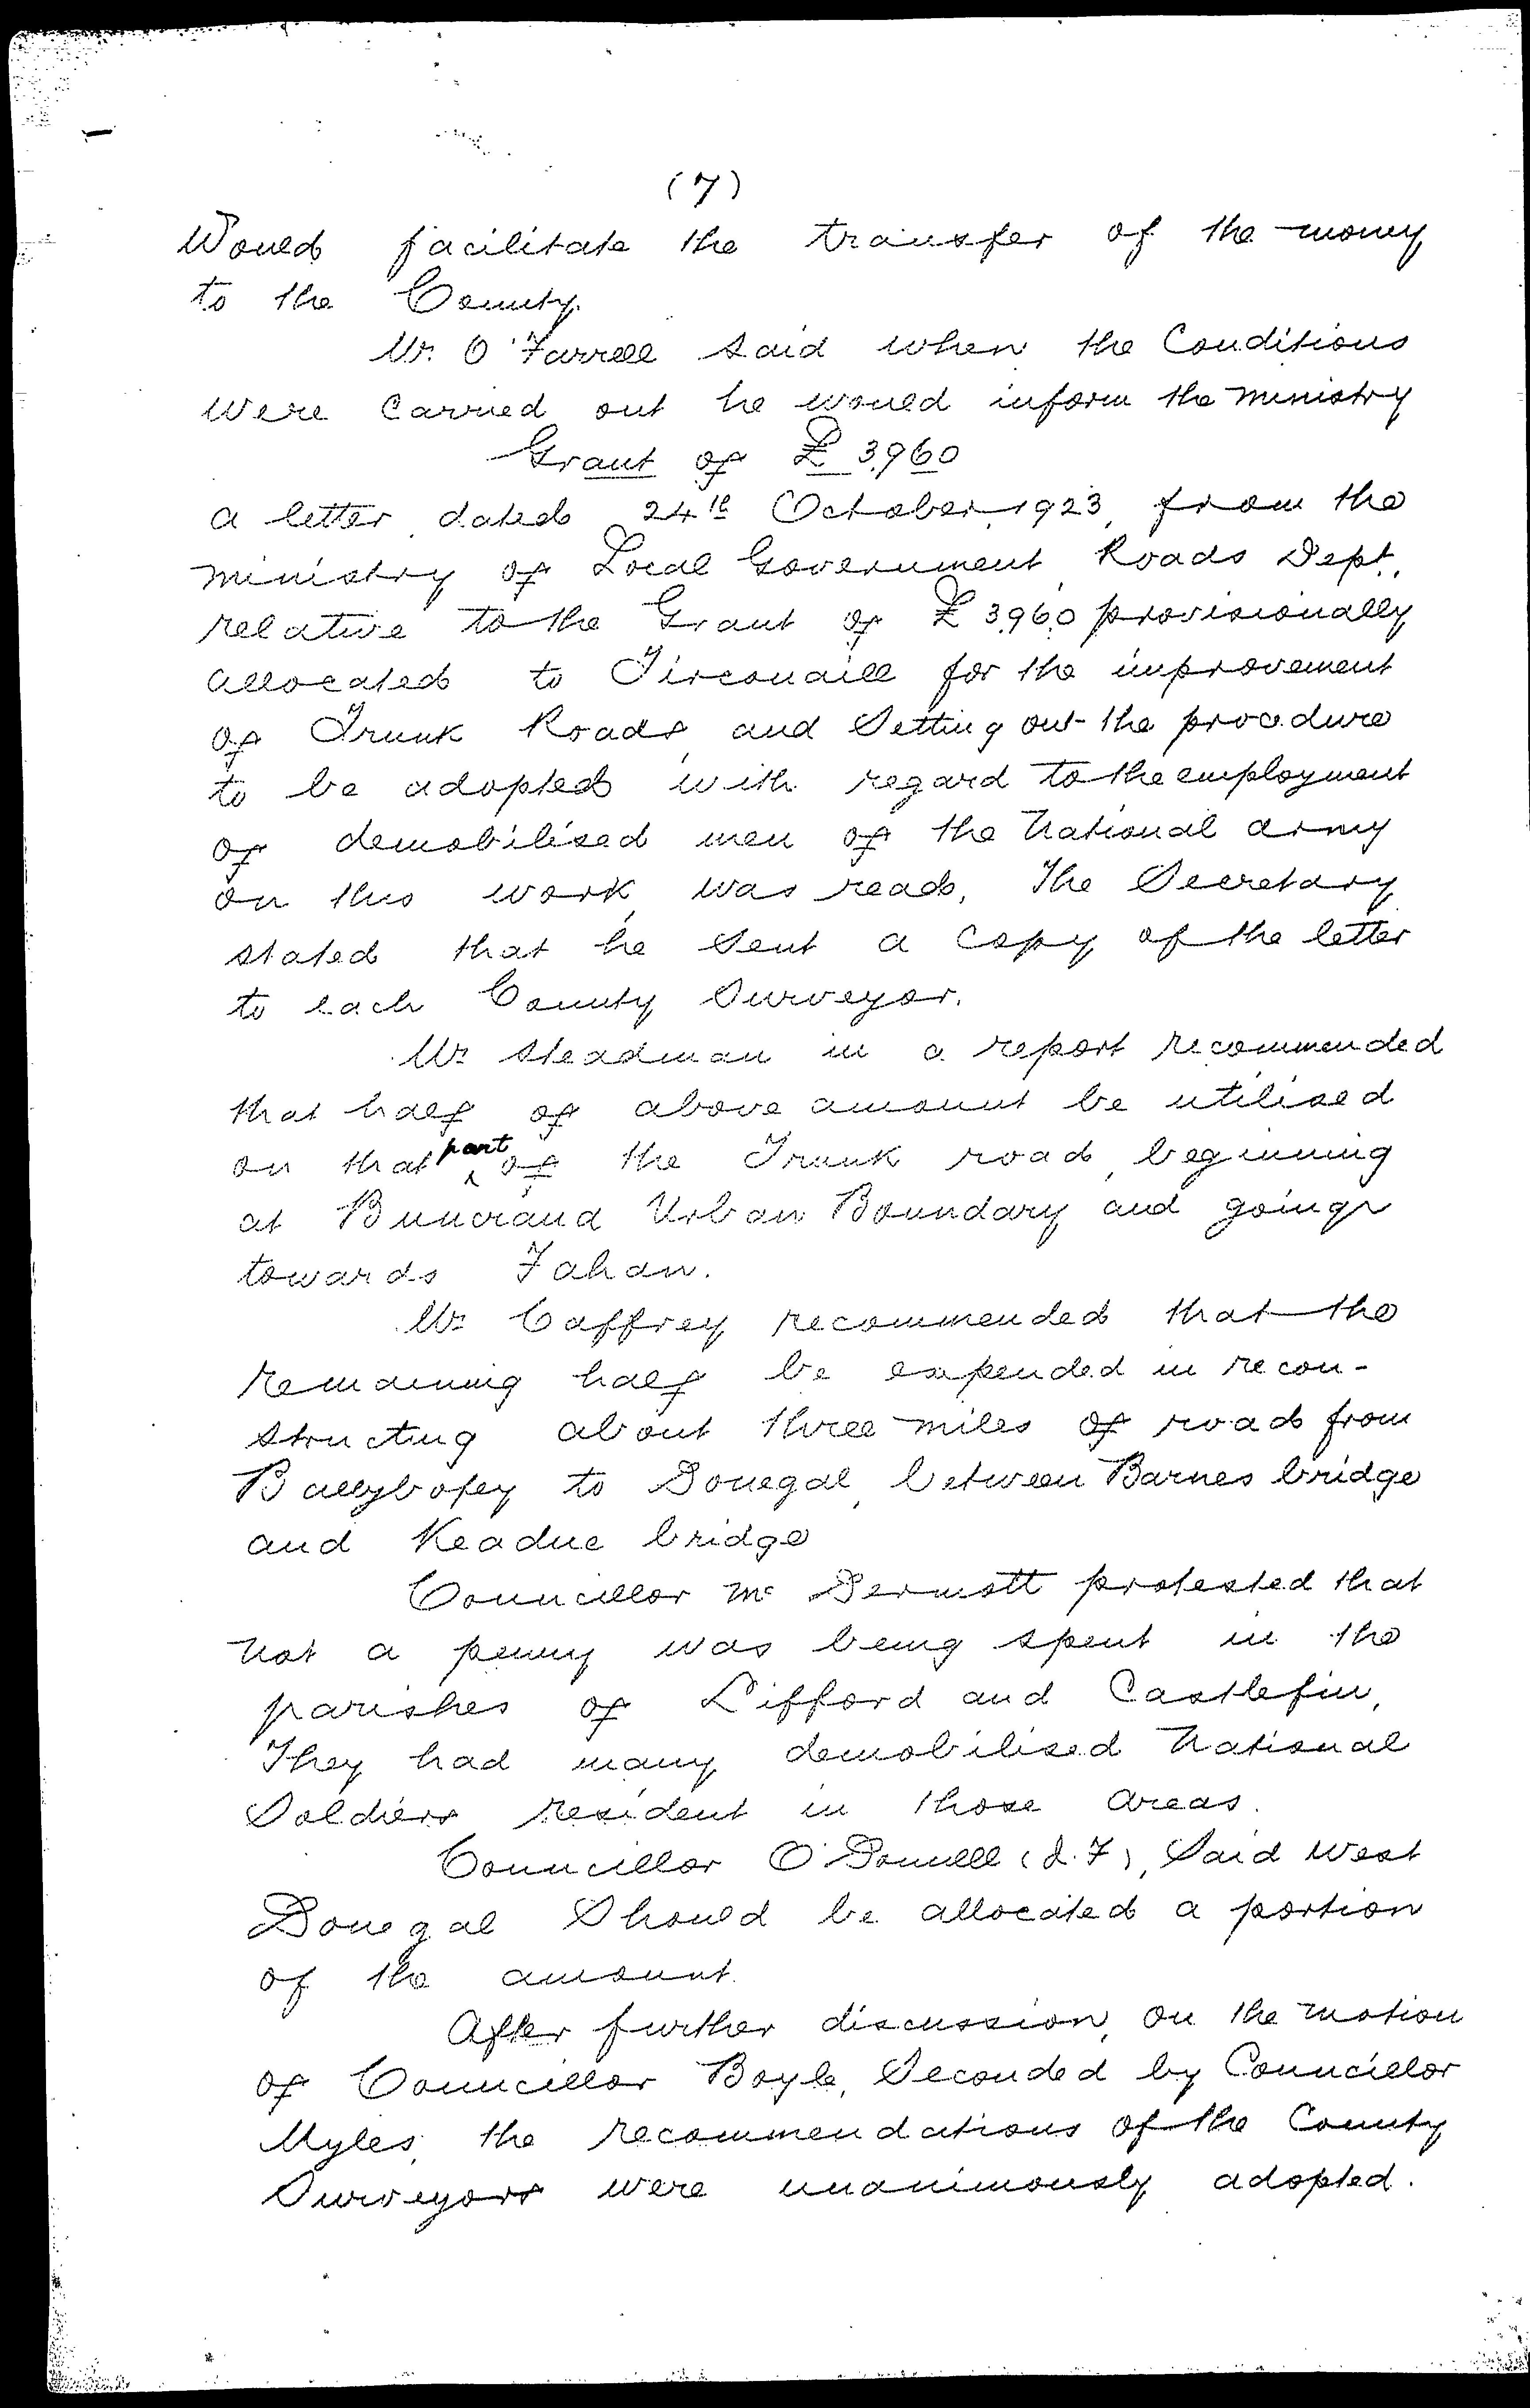 (7)
Would facilitate the transfer of the money
to the County.
Mr. O'Farrell said when the Conditions
were carried out he would inform the Ministry
Grant of £3960
a letter dated 24th October, 1923, from the
Ministry of Local Government, Roads Dept.,
relative to the Grant of £3960 provisionally
allocated to Tirconaill for the improvement
of Trunk Roads, and Setting out the procedure
to be adopted with regard to the employment
of demobilised men of the National Army
on this work, was read. The Secretary
stated that he sent a copy of the letter
to each County Surveyor.
Mr Steadman in a report recommended
that half of above amount be utilised
on that part of the Trunk road, beginning
at Buncrana Urban Boundary and going
towards Fahan.
Mr Caffrey recommended that the
remaining half be expended in recon-
structing about three miles of road from
Ballybofey to Donegal, between Barnes bridge
and Keadue bridge
Councillor Mc Dermott protested that
not a penny was being spent in the
parishes of Lifford and Castlefin,
They had many demobilised National
Soldiers resident in those areas.
Councillor O'Donnell (J.F), said West
Donegal should be allocated a portion
of the amount.
After further discussion, on the motion
of Councillor Boyle, Seconded by Councillor
Myles, the recommendations of the County
Surveyors were unanimously adopted.